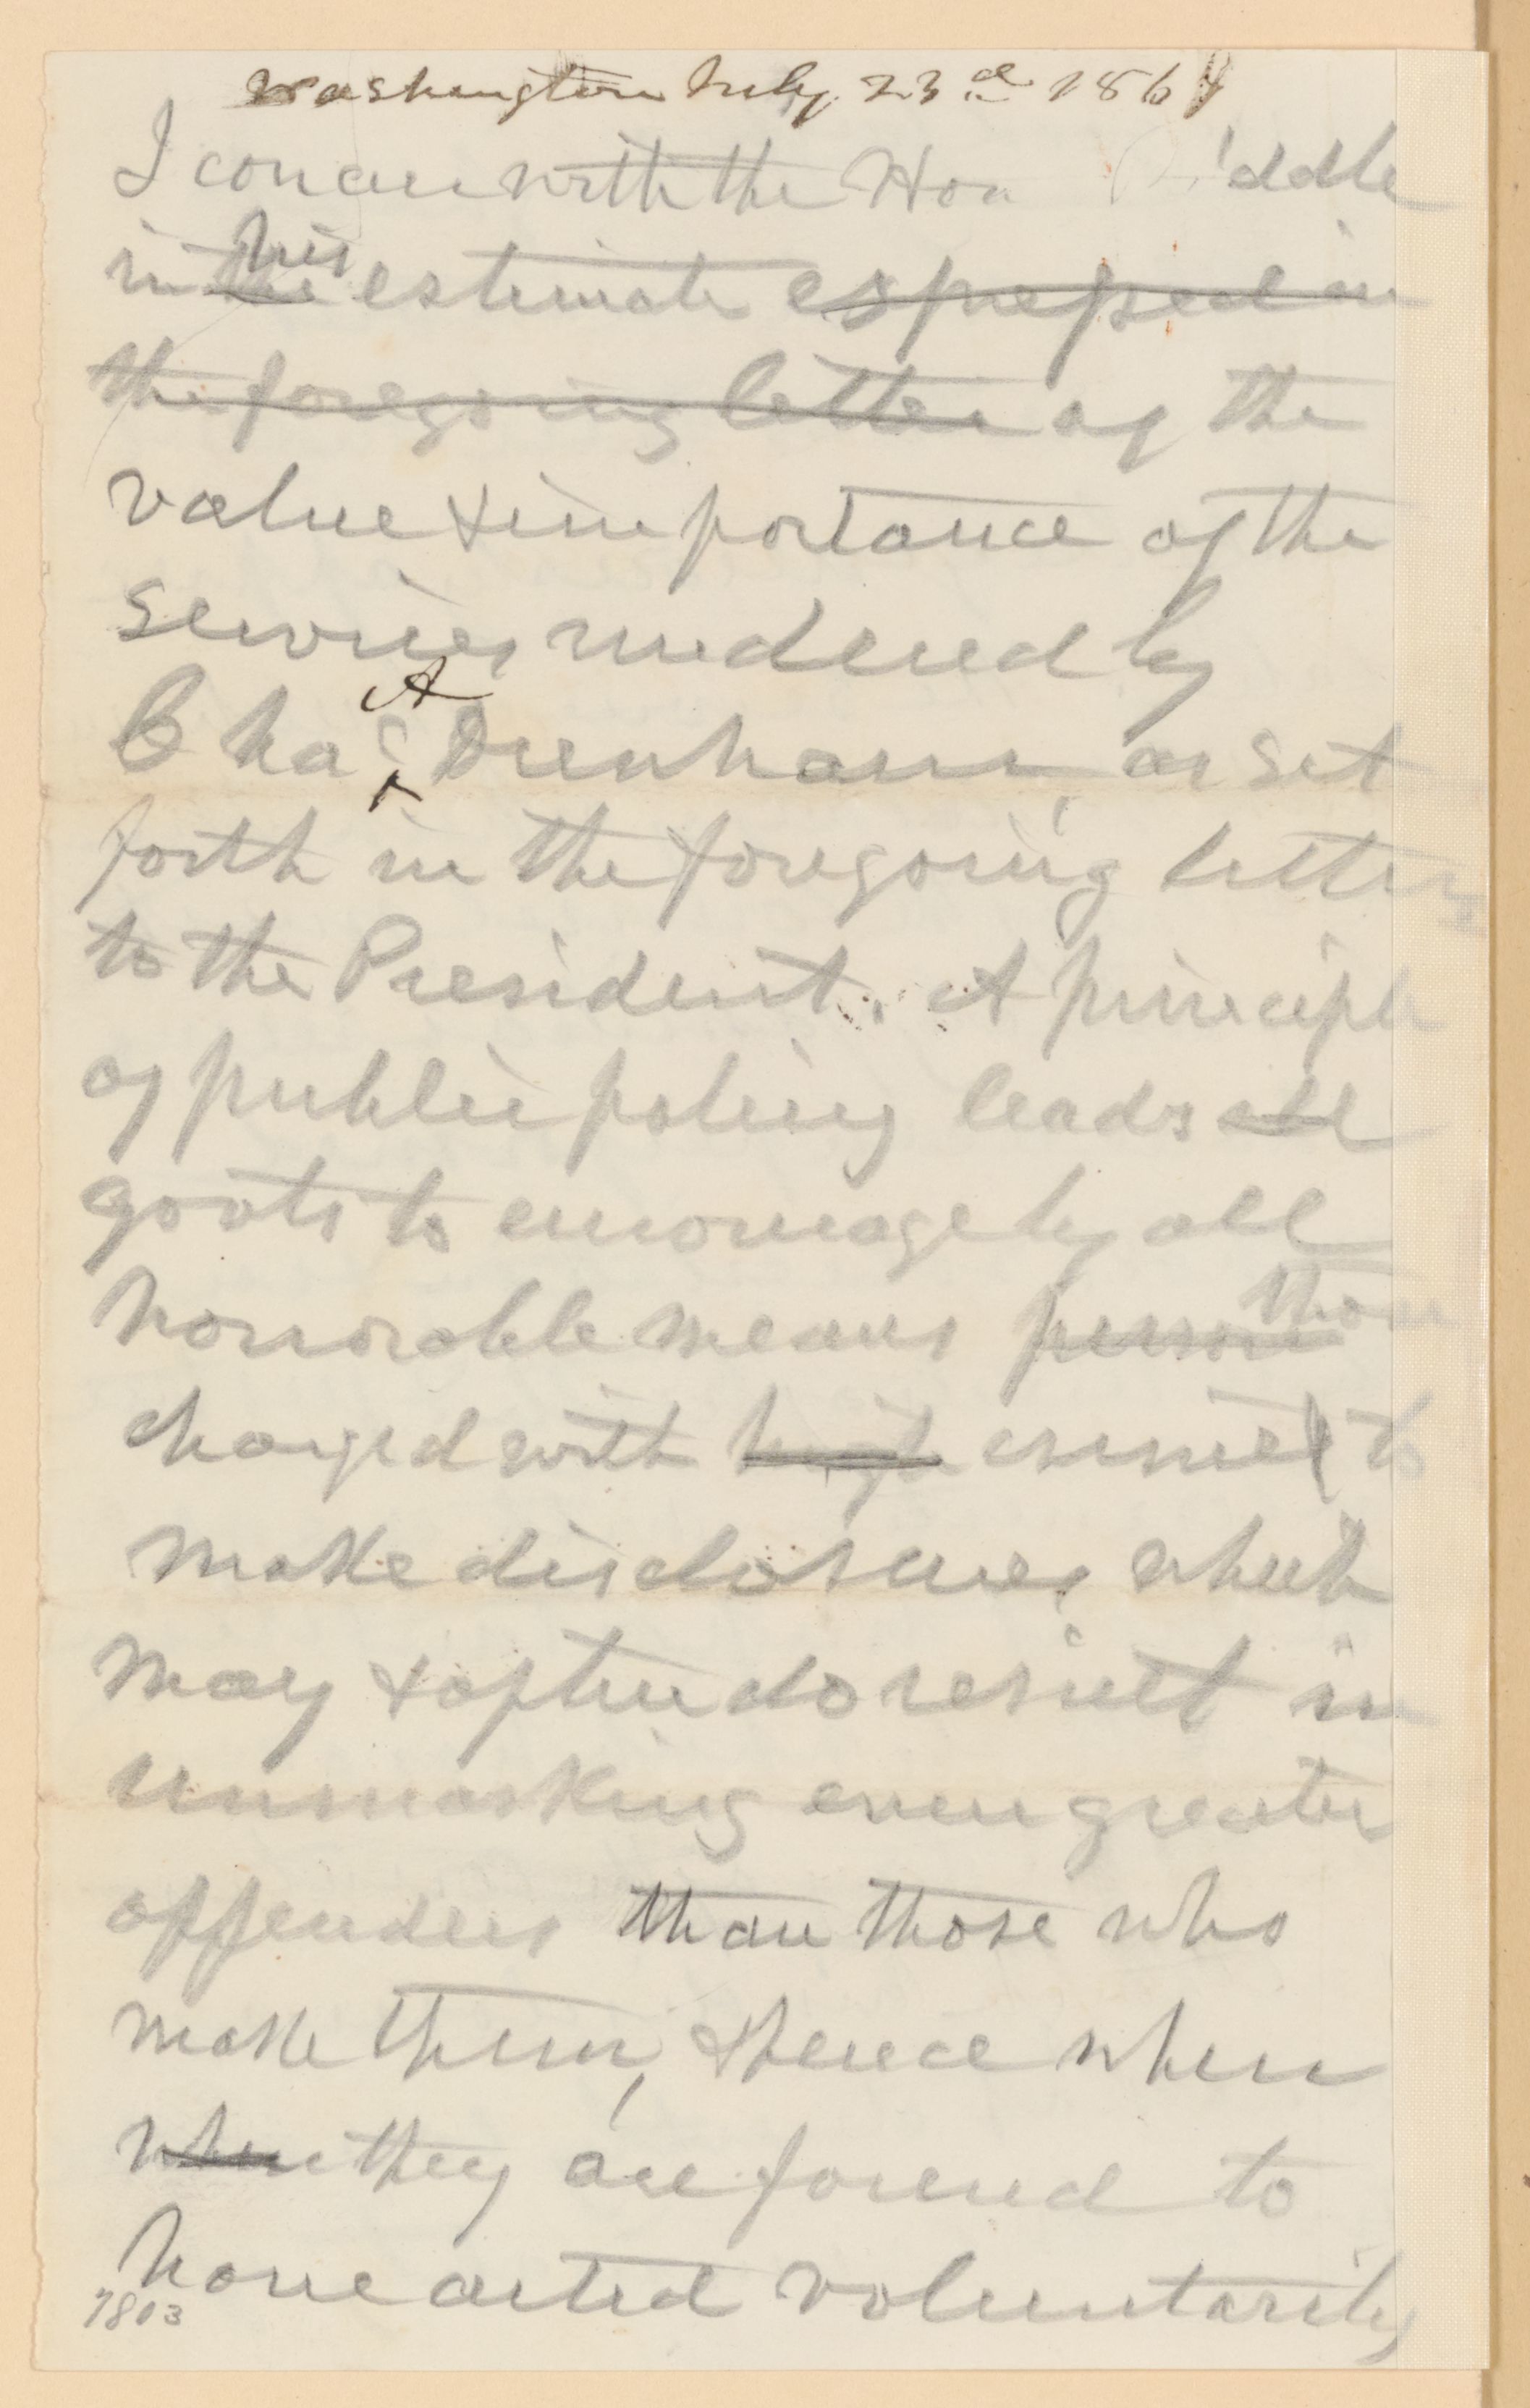 Washington July 23d 1867
I concur with the Hon Riddle
in the his estimate expressed in
the foregoing letter of the
value & importance of the
services rendered by
Chas A Dunham, as set
forth in the foregoing letter
to the President. A principle
of public policy leads all
govts to encourage by all
honorable means persons those
charged with high crimes to
make disclosures which
may & often do result in
unmasking even greater
offenders than those who
make them, & hence when
when they are found to
have acted voluntarily
7803